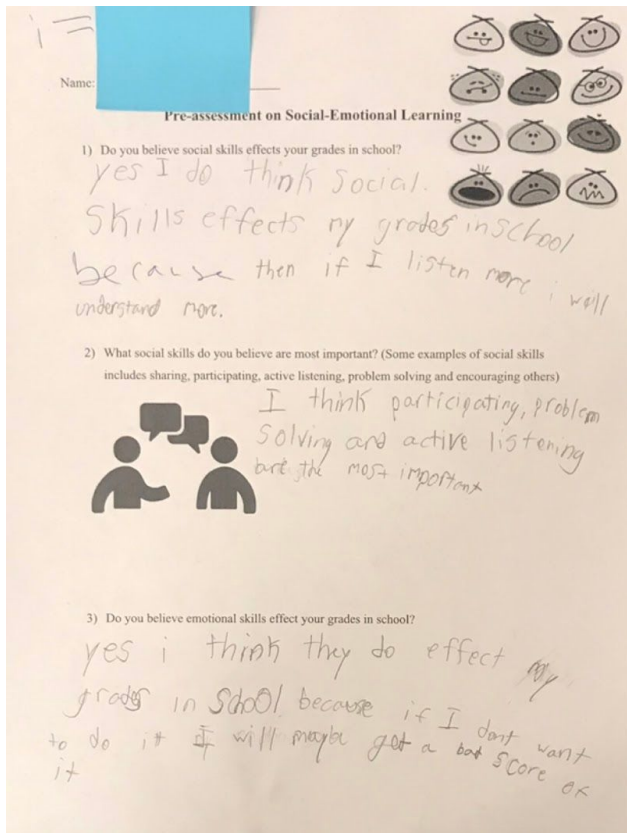 i =
Name:
Pre-assessment on Social-Emotional Learning
1) Do you believe social skills effects your grades in school?
yes I do think social.
skills effects my grades in school
because then if I listen more i will
understand more.
2) What social skills do you believe are most important? (Some examples of social skills
includes sharing, participating, active listening, problem solving and encouraging others)
I think participating, problem
solving and active listening
are the most important
3) Do you believe emotional skills effect your grades in school?
yes i think they do effect my
grades in school because if I dont want
to do it I will maybe get a bad score on
it